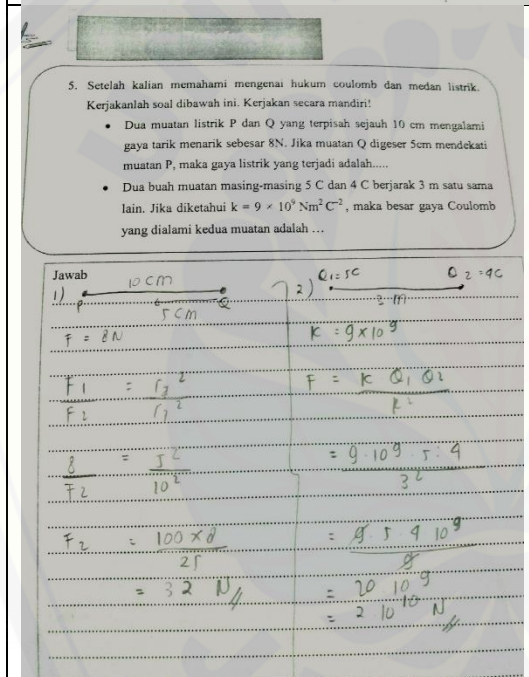 5. Setelah kalian memahami mengenai hukum coulomb dan medan listrik.
Kerjakanlah soal dibawah ini. Kerjakan secara mandiri!
• Dua muatan listrik P dan Q yang terpisah sejauh 10 cm mengalami
gaya tarik menarik sebesar 8N. Jika muatan Q digeser 5cm mendekati
muatan P, maka gaya listrik yang terjadi adalah.....
• Dua buah muatan masing-masing 5 C dan 4 C berjarak 3 m satu sama
lain. Jika diketahui k = 9 × 10⁹ Nm² C⁻², maka besar gaya Coulomb
yang dialami kedua muatan adalah …
Jawab
1) 10 cm
P Q
5 cm
F = 8N
F1 / F2 = r2² / r1²
8 / F2 = 5² / 10²
F2 = 100 x 8 / 25
= 32 N //
2) Q1 = 5C Q2 = 4C
3 m
K = 9 x 10⁹
F = K Q1 Q2 / R²
= 9 . 10⁹ . 5 . 4 / 3²
= 9 . 5 . 4 10⁹ / 9
= 20 10⁹
= 2 10¹⁰ N //